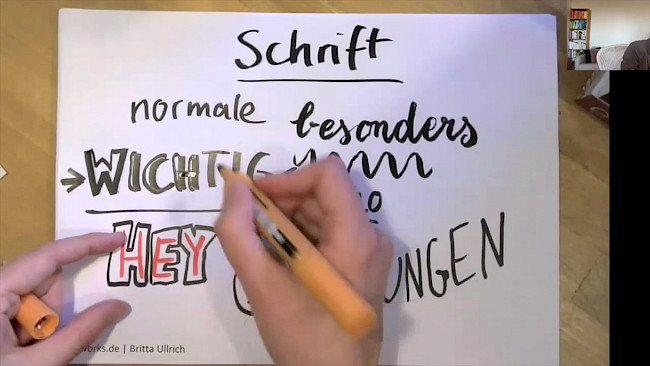 Schrift
normale besonders
WICHTIG
HEY UNGEN
works.de | Britta Ullrich